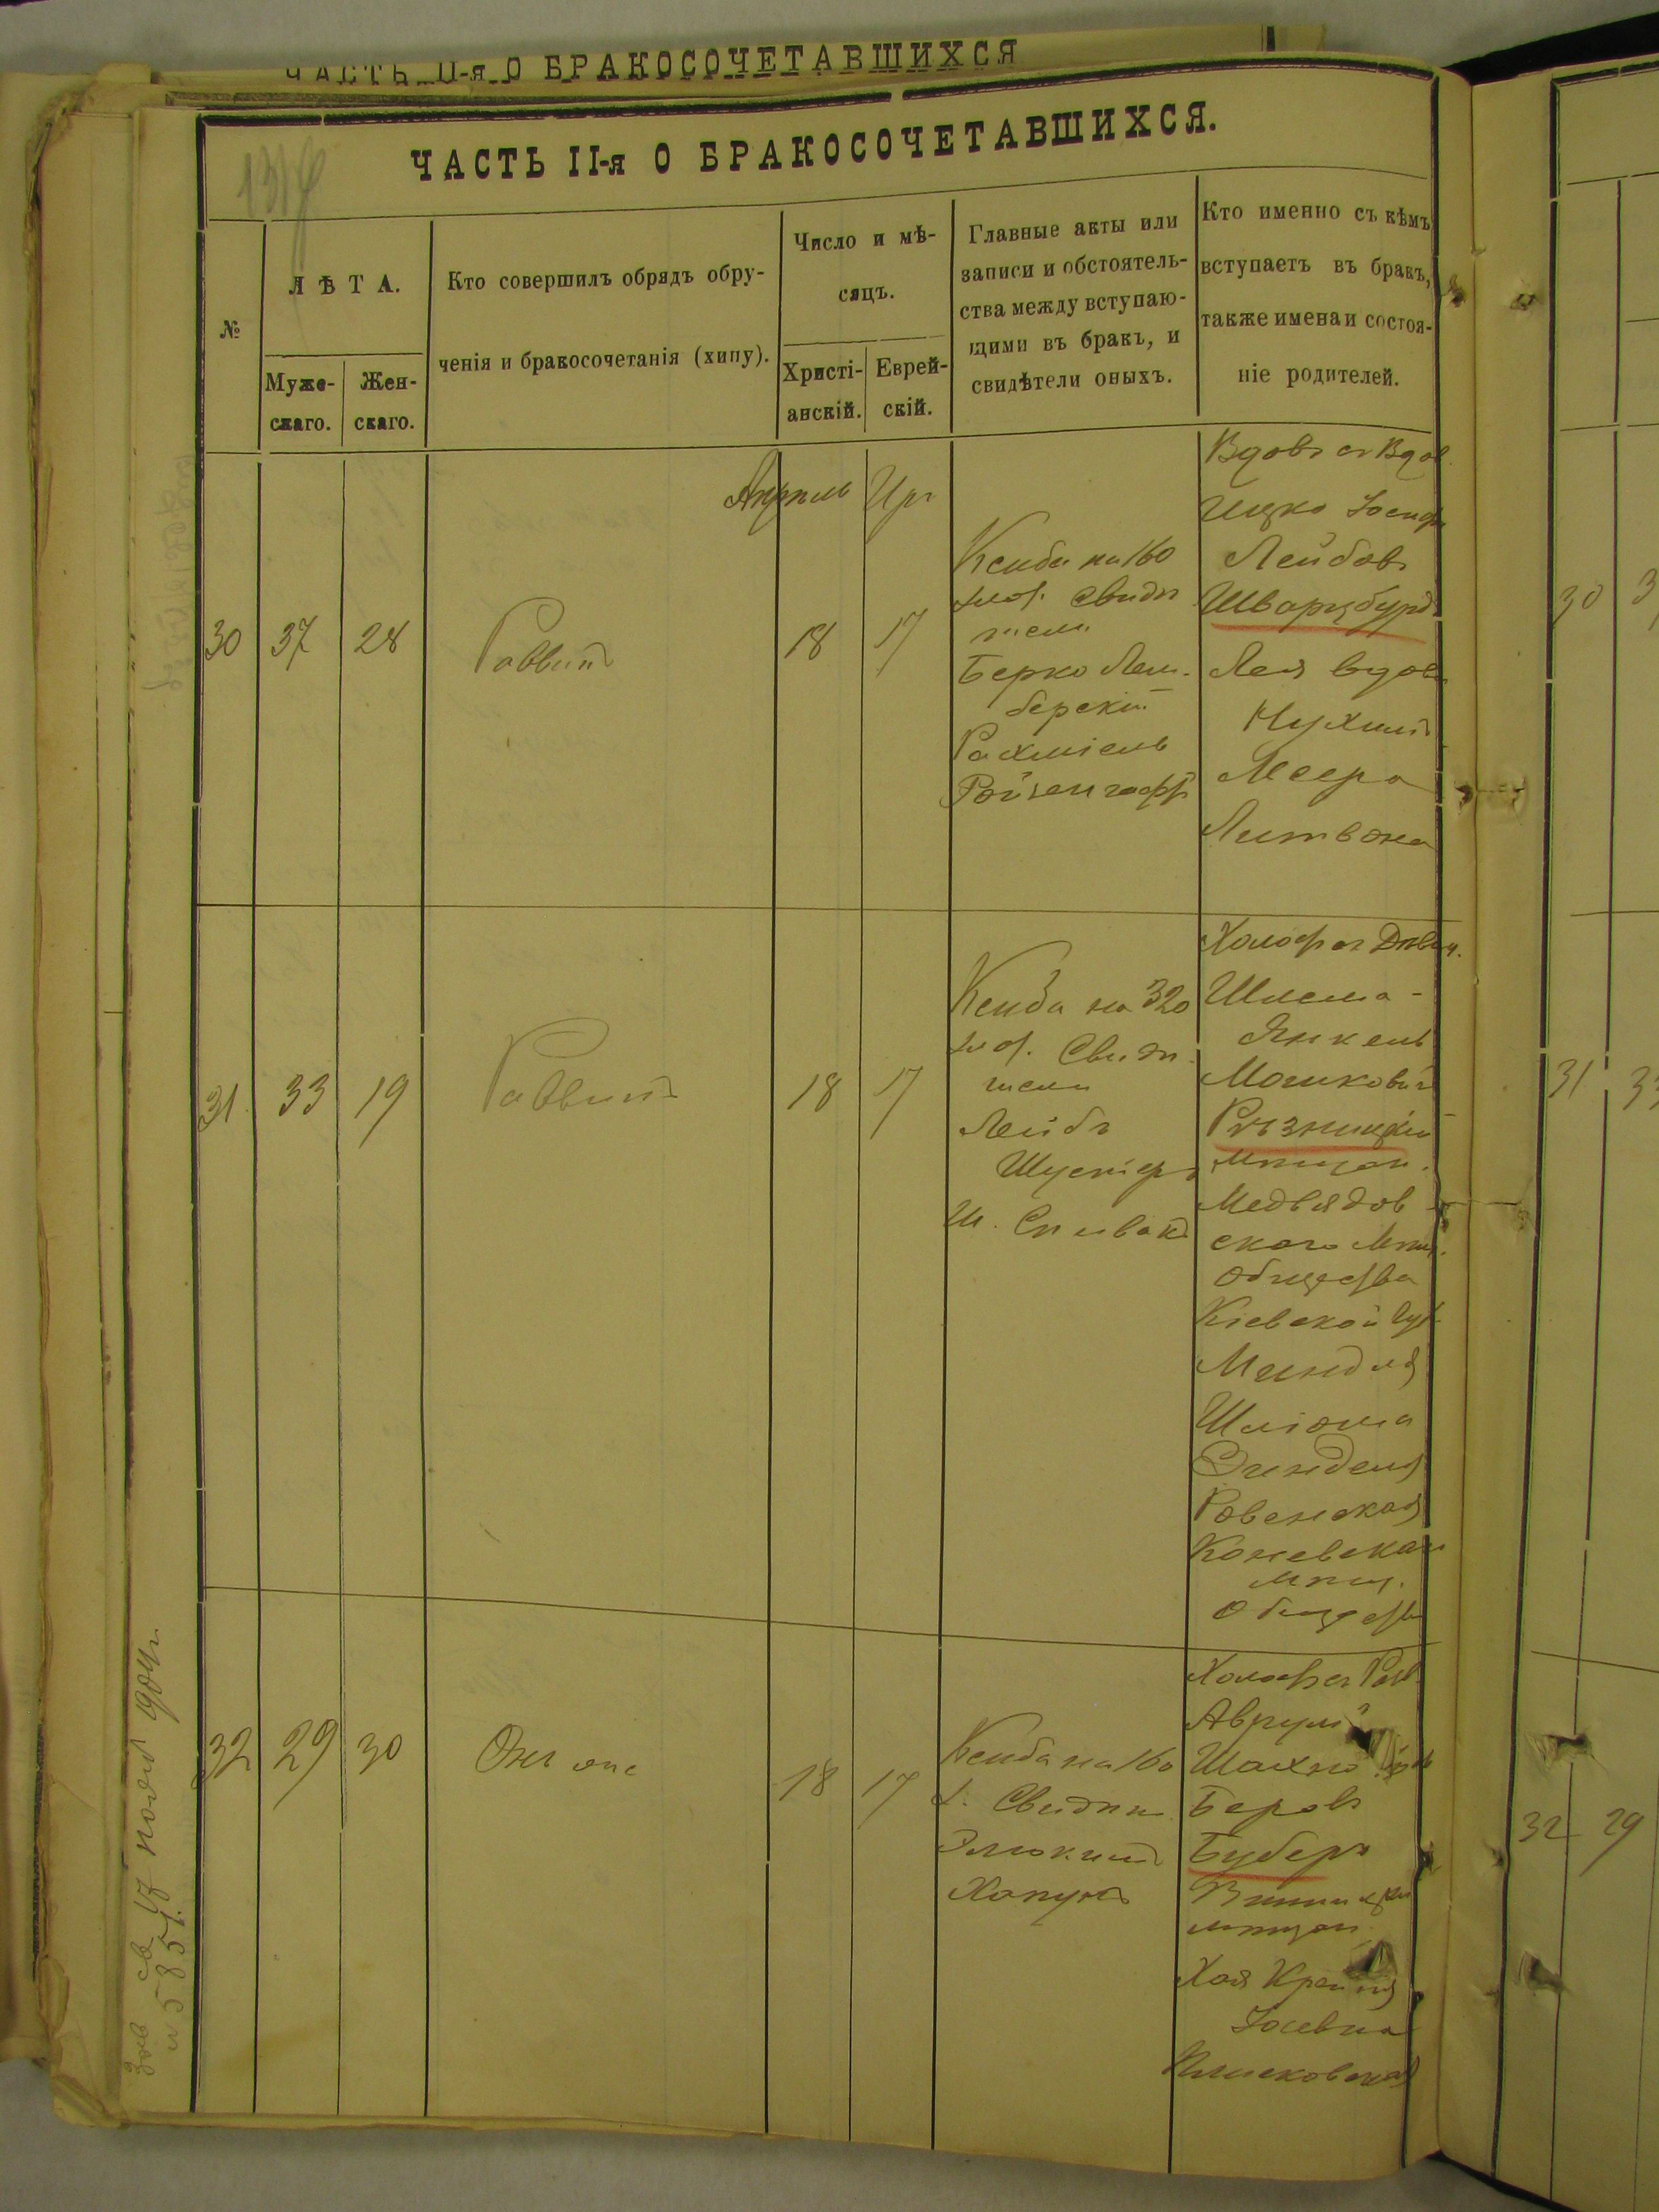 ЧАСТЬ II-я О БРАКОСОЧЕТАВШИХСЯ
ЧАСТЬ II-я О БРАКОСОЧЕТАВШИХСЯ.
№
ЛѢТА.
Муже-
скаго.
Жен-
скаго.
Кто совершилъ обрядъ обру-
ченія и бракосочетанія (хипу).
Число и мѣ-
сяцъ.
Христі-
анскій.
Еврей-
скій.
Главные акты или
записи и обстоятель-
ства между вступаю-
щими въ бракъ, и
свидѣтели оныхъ.
Кто именно съ кѣмъ
вступаетъ въ бракъ,
также имена и состоя-
ніе родителей.
Апрѣль Иръ
30 37 28 Раввинъ 18 17
Ксиба на 160
злот. Свидѣ
тели
Берко Лем-
берскій
Рахміель
Вдовъ съ Вдов.
Ицко Іосифъ
Лейбовъ
Шварцбурд
Лея вдова
Нухимъ
Меера
Литвака
31 33 19 Раввинъ 18 17
Ксиба на 320
злот. Свидѣ
тели
Лейбъ
Шустеръ
Ш. Спивакъ
Холост съ Дѣвиц.
Шлема-
Янкель
Мошковичъ
Рѣзницкій
мѣщан.
Медвядов
ского Мѣщ.
Общества
Кіевской Губ
Миндля
Шліома
Зинделя
Ровенская
Каневская
мѣщ.
Общества
32 29 30 Онъ же 18 17
Ксиба на 160
з. Свидѣт.
Элюкимъ
Хапунъ
Холост съ Разв.
Аврумъ
Шахно
Беровъ
Буберъ
Винницкій
мѣщан.
Хая
Іосевна
Плисковская
30 3
31 33
32 29